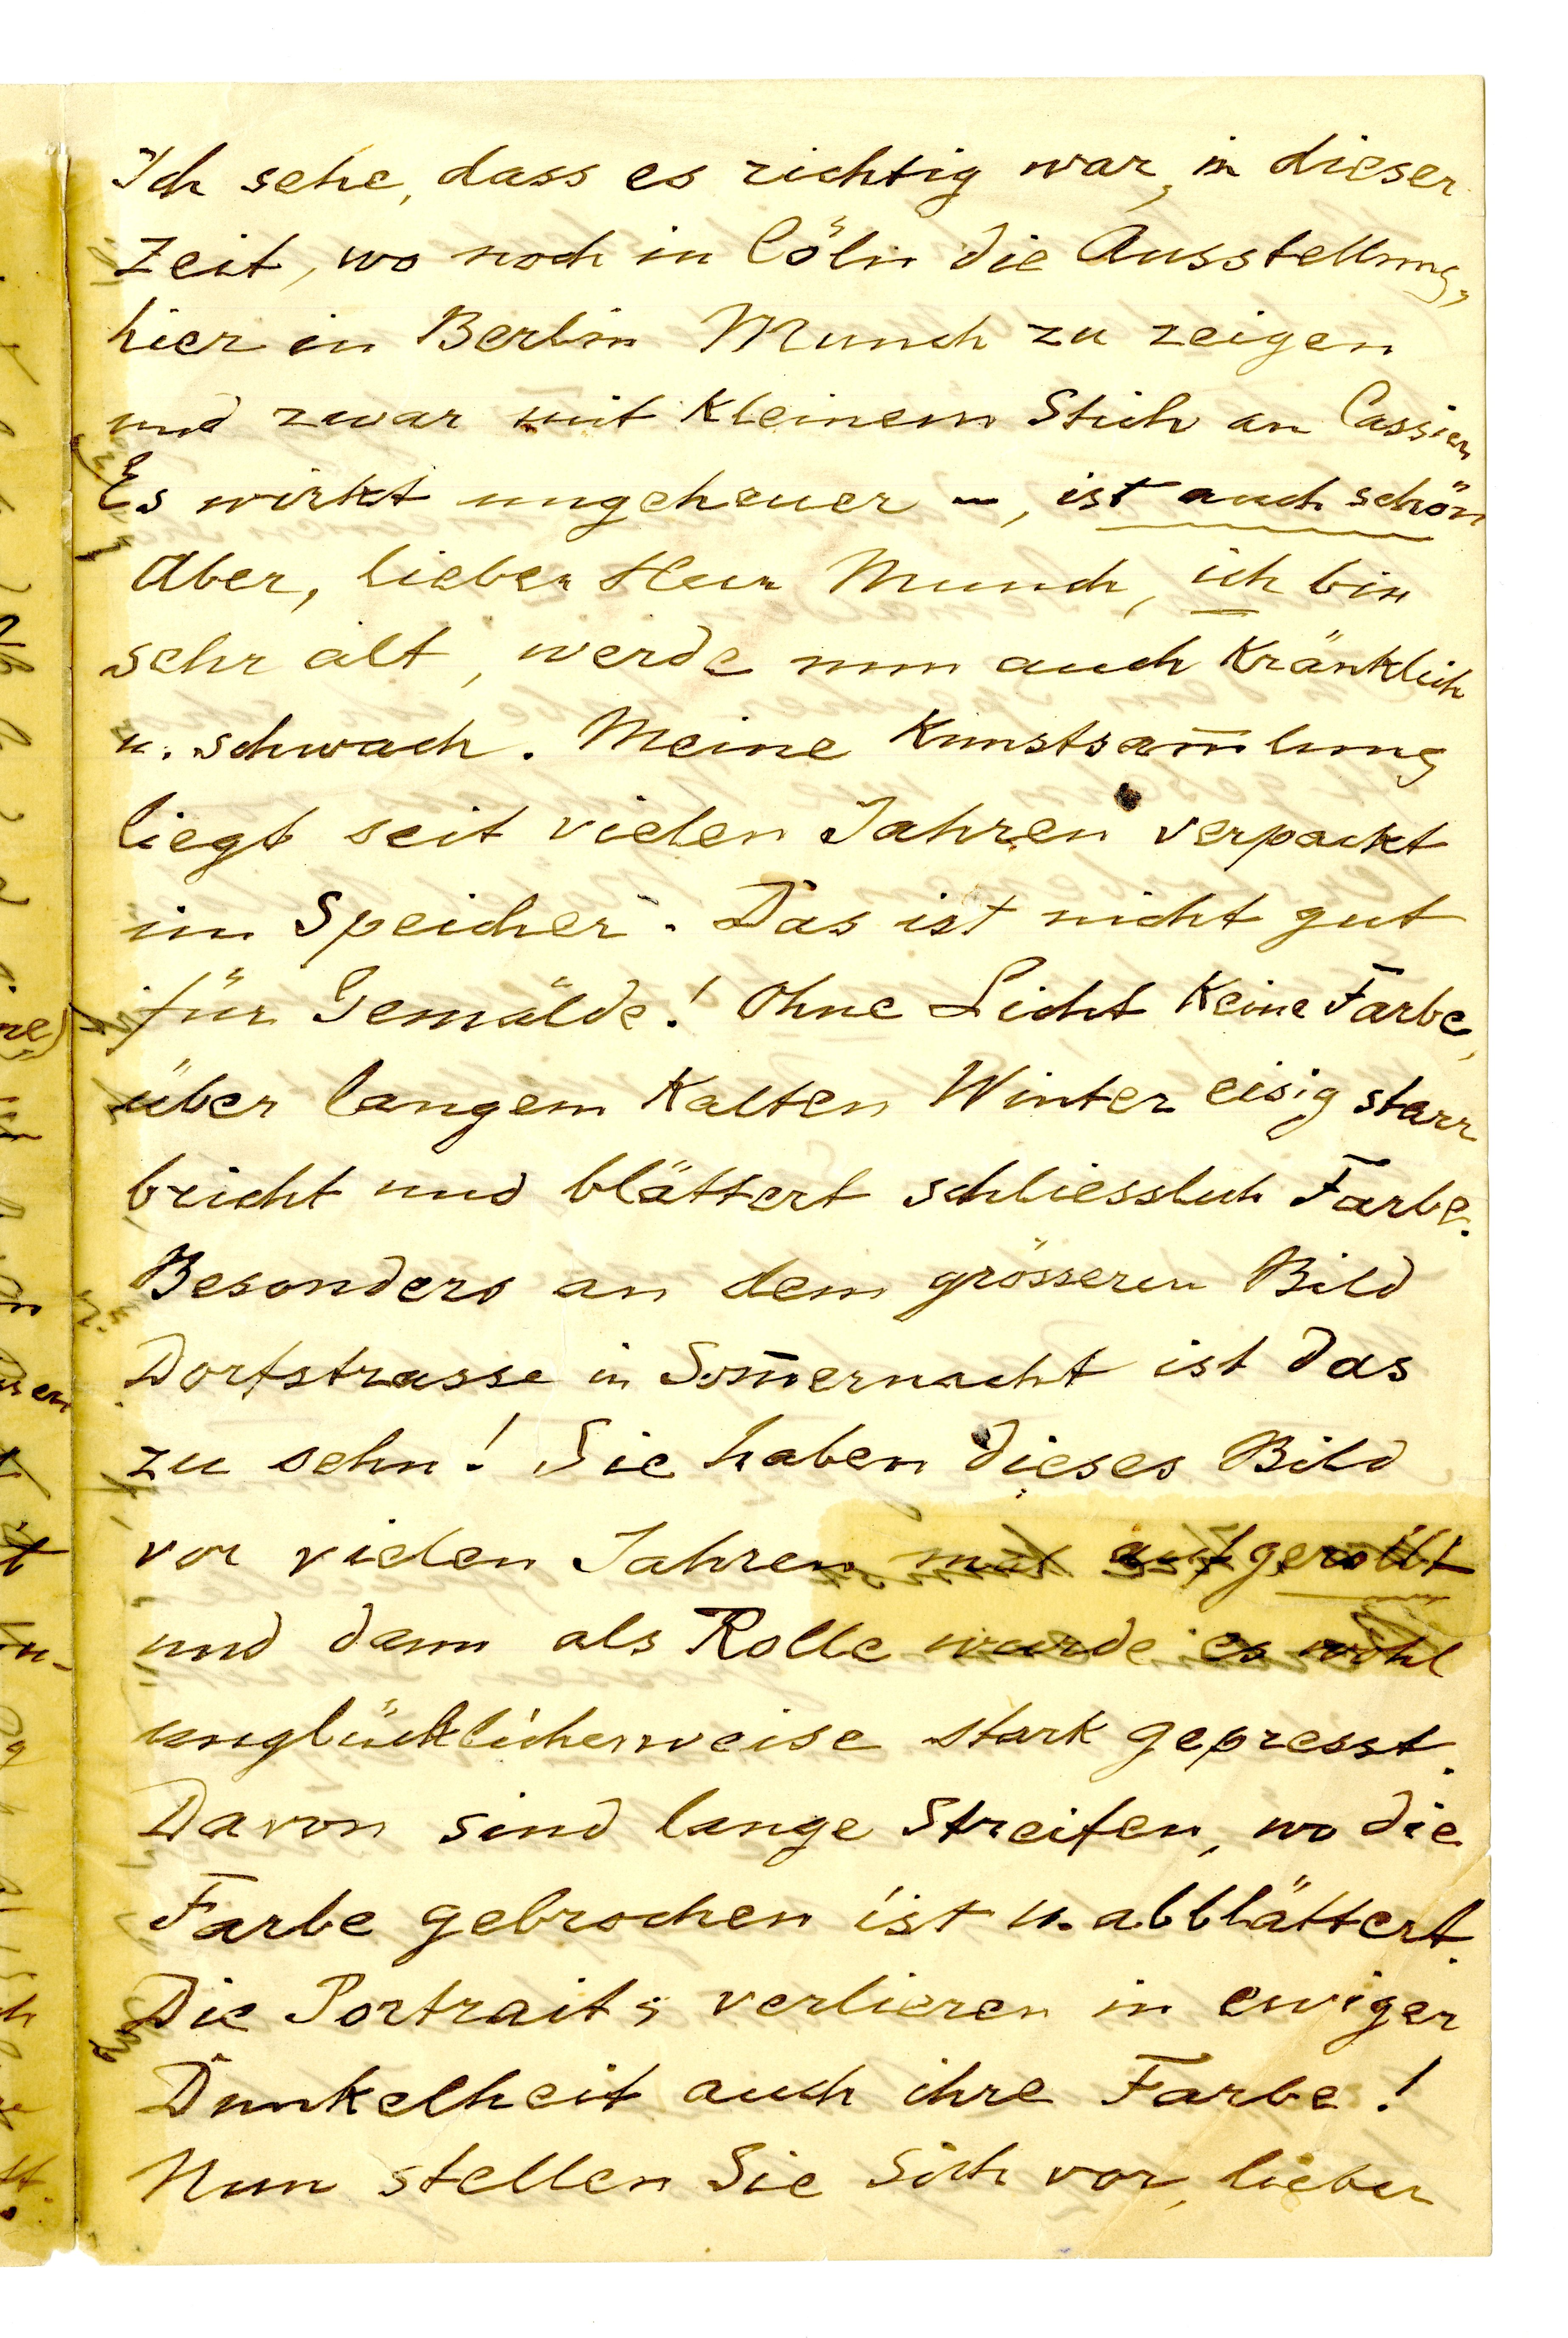 Ich sehe, dass es richtig war, in dieser
Zeit, wo noch in Cöln die Ausstellung,
hier in Berlin Munch zu zeigen
und zwar mit kleinem Stich an Cassirer
Es wirkt ungeheuer –, ist auch schön
Aber, lieber Herr Munch, ich bin
sehr alt, werde nun auch kränklich
u. schwach. Meine Kunstsam̄lung
liegt seit vielen Jahren verpackt
im Speicher. Das ist nicht gut
für Gemälde! Ohne Licht keine Farbe,
über langem kalten Winter eisig starr
bricht und blättert schliesslich Farbe.
Besonders an dem grösseren Bild
Dorfstrasse in Som̄ernacht ist das
zu sehn! Sie haben dieses Bild
vor vielen Jahren mal aufgerollt
und dann als Rolle wurde es wohl
unglücklicherweise stark gepresst.
Davon sind lange Streifen, wo die
Farbe gebrochen ist u. abblättert.
Die Portraits verlieren in ewiger
Dunkelheit auch ihre Farbe!
Nun stellen Sie Sich vor, lieber